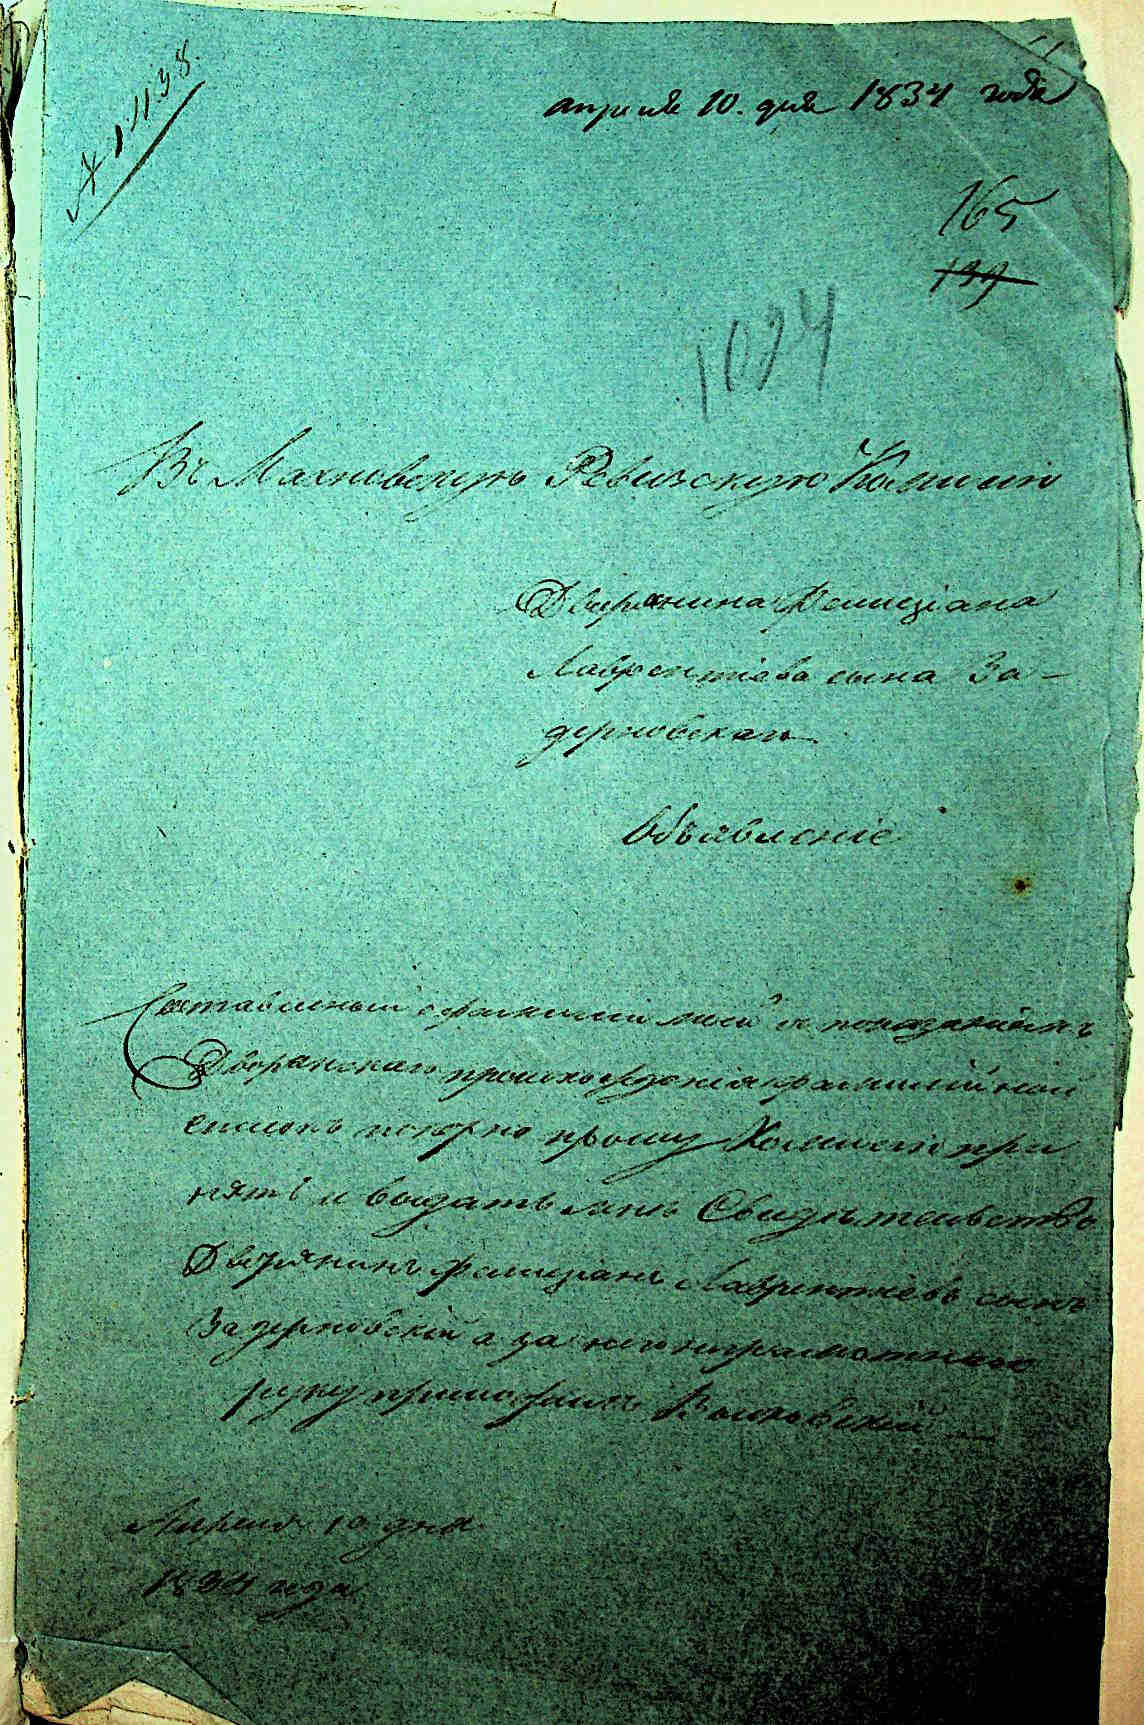 № 1438.
апреля 10. дня 1834 года
165
139
1024
Въ Махновскую Ревизскую Комисію
Дворянина Фелиціана
Лаврентіева сына За-
дерновскаго
Объявленіе
Составленный о фамиліи моей съ показаніемъ
Дворянскаго происхожденія фамилійной
списокъ покорно прошу Комисію при
нять и выдать мнѣ Свидѣтельство
Дворянинъ Фелиціанъ Лаврентіевъ сынъ
Задерновскій а за него неграмотнаго
руку приложилъ
Апреля 10 дня
1834 года